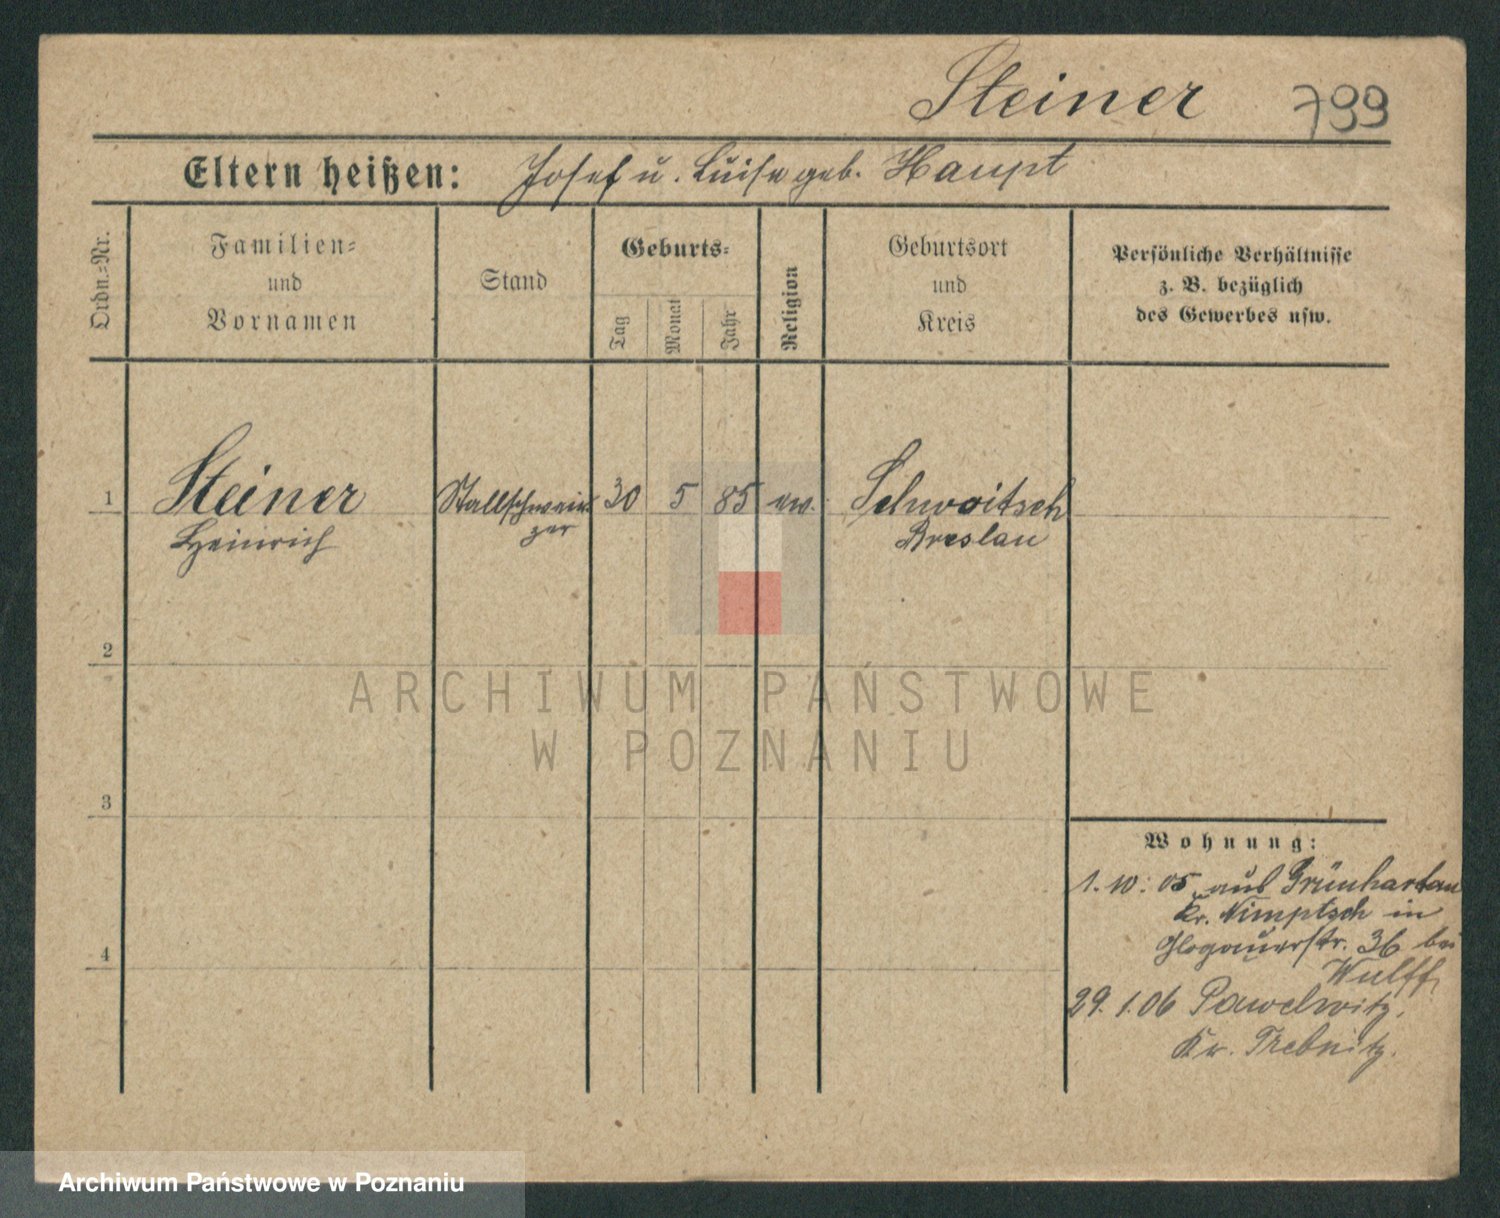 Steiner 799
Eltern heißen: Josef u. Luise geb. Haupt
Ordn.=Nr.
Familien=
und
Vornamen
Stand
Geburts=
Tag
Monat
Jahr
Religion
Geburtsort
und
Kreis
Persönliche Verhältnisse
z. B. bezüglich
des Gewerbes usw.
1 Steiner Stallschwei 30 5 85 ew. Schwoitsch
Heinrich zer Breslau
2
ARCHIWUM PAŃSTWOWE
W POZNANIU
3
Wohnung:
1. 10. 05. aus Grünhartau
Kr. Nimptsch in
Glogauerstr. 36 bei
4
Wulff,
29. 1. 06 Pawelwitz,
Kr. Trebnitz.
Archiwum Państwowe w Poznaniu